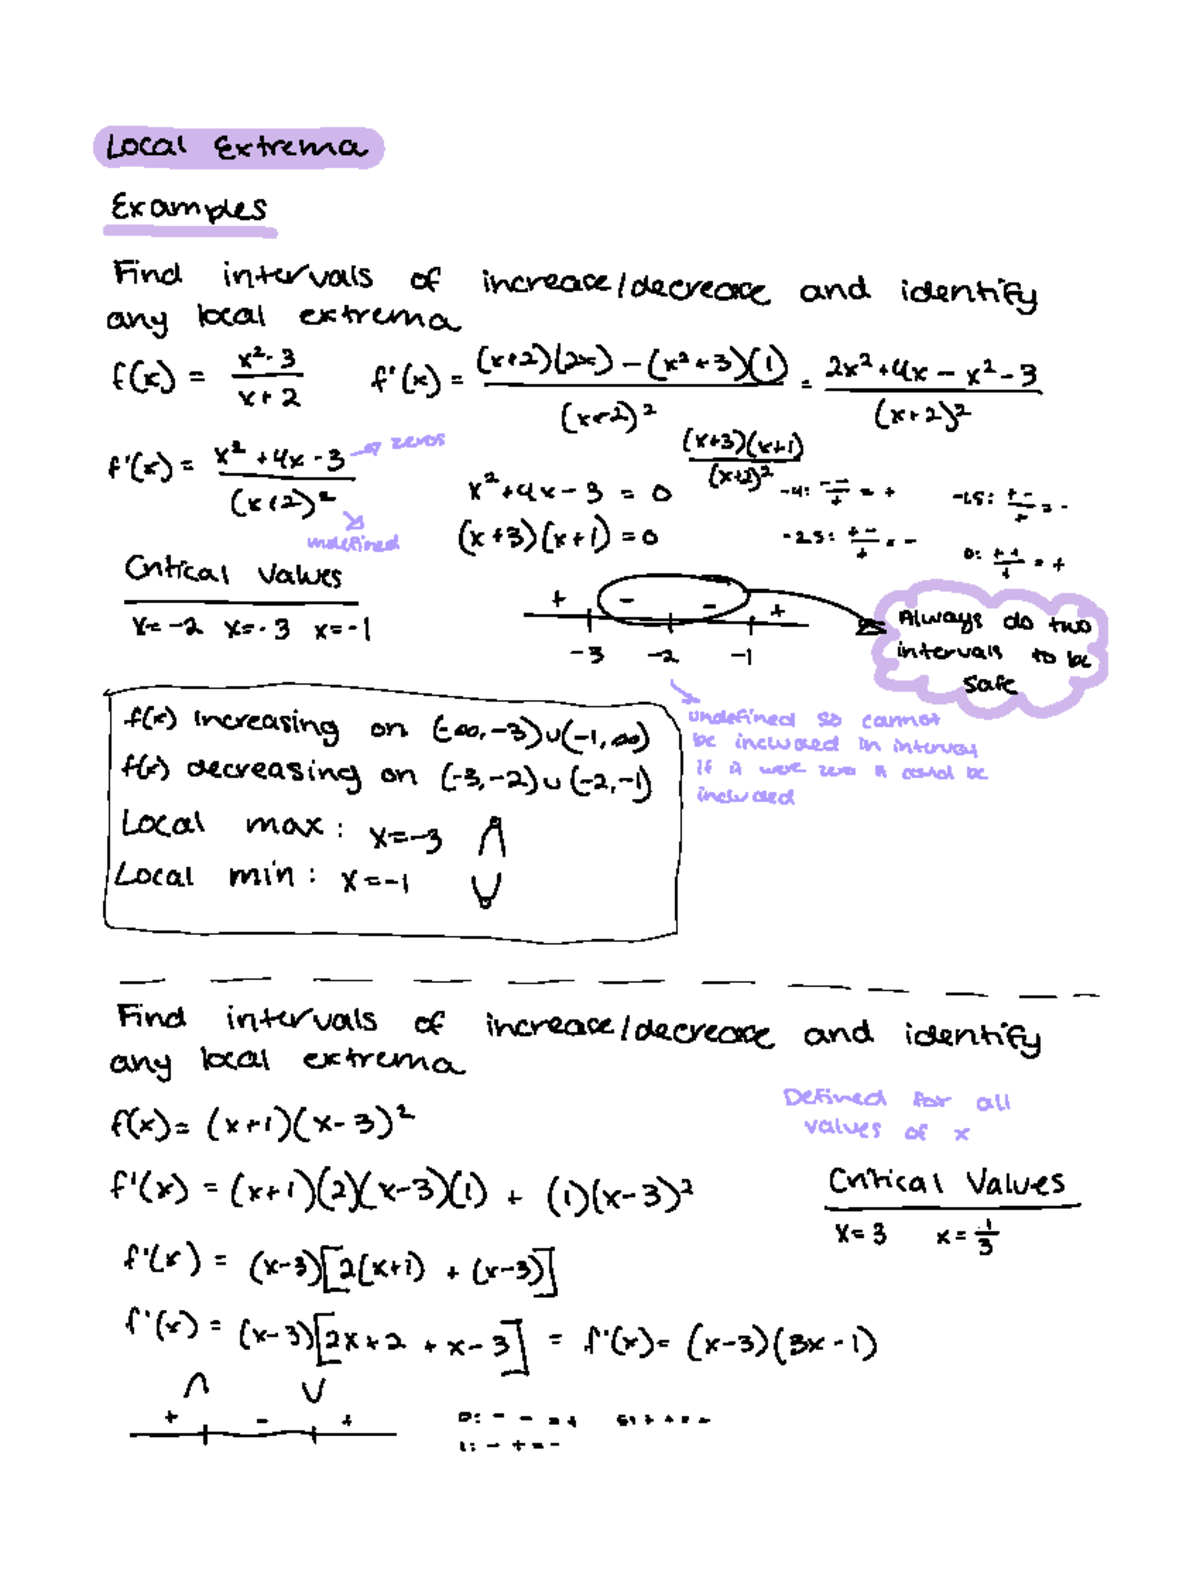 Local Extrema
Examples
Find intervals of increase/decrease and identify
any local extrema
f(x) = (x²-3)/(x+2)   f'(x) = ((x+2)(2x) - (x²+3)(1))/(x+2)² = (2x²+4x-x²-3)/(x+2)²
f'(x) = (x²+4x-3)/(x+2)² → zeros
undefined
x²+4x-3 = 0
(x+3)(x+1) = 0
(x+3)(x+1)/(x+2)²
-4: - -/+ = +   -1.5: + -/+ = -
-2.5: + -/+ = -   0: + +/+ = +
Critical Values
x=-2 x=-3 x=-1
+ - - +
-3 -2 -1
Always do two
intervals to be
safe
undefined so cannot
be included in interval
If it were zero it could be
included
f(x) increasing on (-∞,-3)∪(-1,∞)
f(x) decreasing on (-3,-2)∪(-2,-1)
Local max: x=-3
Local min: x=-1
Find intervals of increase/decrease and identify
any local extrema
f(x) = (x+1)(x-3)²
Defined for all
values of x
f'(x) = (x+1)(2)(x-3)(1) + (1)(x-3)²
Critical Values
x=3 x=1/3
f'(x) = (x-3)[2(x+1) + (x-3)]
f'(x) = (x-3)[2x+2 + x-3] = f'(x) = (x-3)(3x-1)
+ - +
0: - - = +
1: - + = -